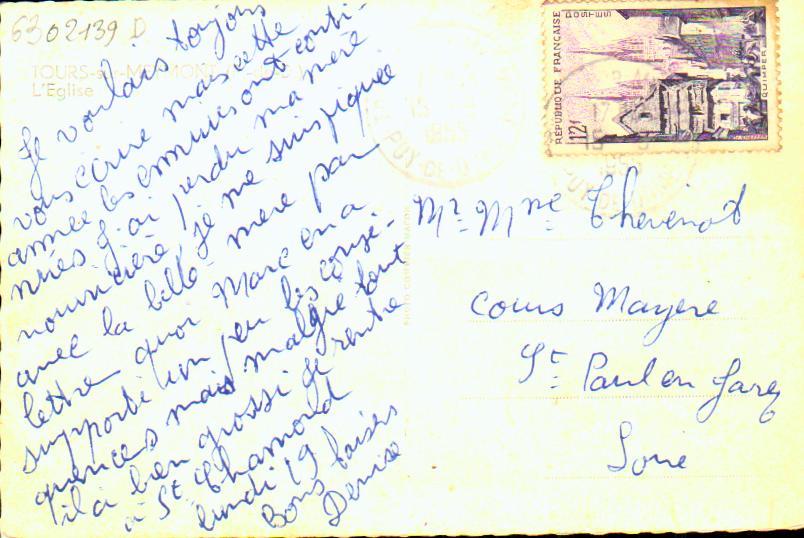 6302139 D
TOURS-sur-MEYMONT
L'Eglise
Je voulais toujours
vous écrire mais cette
année les ennuis ont conti-
nués j'ai perdu ma mère
nourricière, je me suis piquée
avec la belle-mère par
lettre quoi Marc en a
supporté un peu les consé-
quences mais malgré tout
il a bien grossi Je rentre
à St Chamond
lundi 19
Bons baisers
Denise
RÉPUBLIQUE FRANÇAISE
POSTES
12f
QUIMPER
1955
PUY-DE-D
Mr. Mme Thevenot
Cours Mayere
St Paul en Jarez
Loire